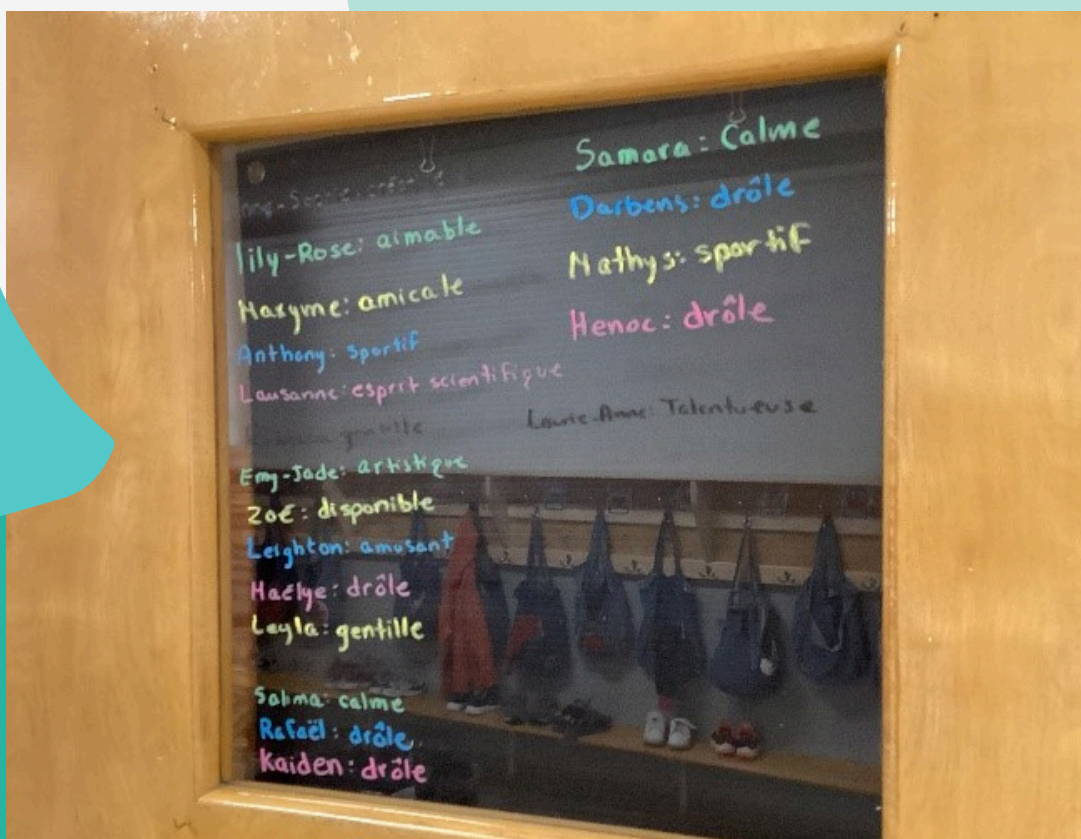 Lily-Rose: aimable
Maryme: amicale
Anthony: sportif
Lausanne: esprit scientifique
Emy-Jade: artistique
Zoé: disponible
Leighton: amusant
Maëlye: drôle
Leyla: gentille
Salma: calme
Rafaël: drôle
Kaiden: drôle
Samara: Calme
Darbens: drôle
Mathys: sportif
Henoc: drôle
Laurie-Anne: Talentueuse